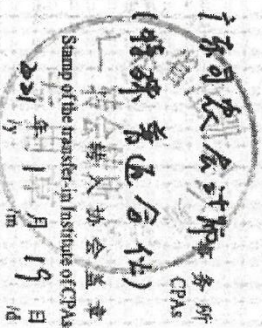 广东司农会计师事务所
CPAs
(特殊普通合伙)
转入协会盖章
Stamp of the transfer-in Institute of CPAs
2021年1月19日
/y /m /d